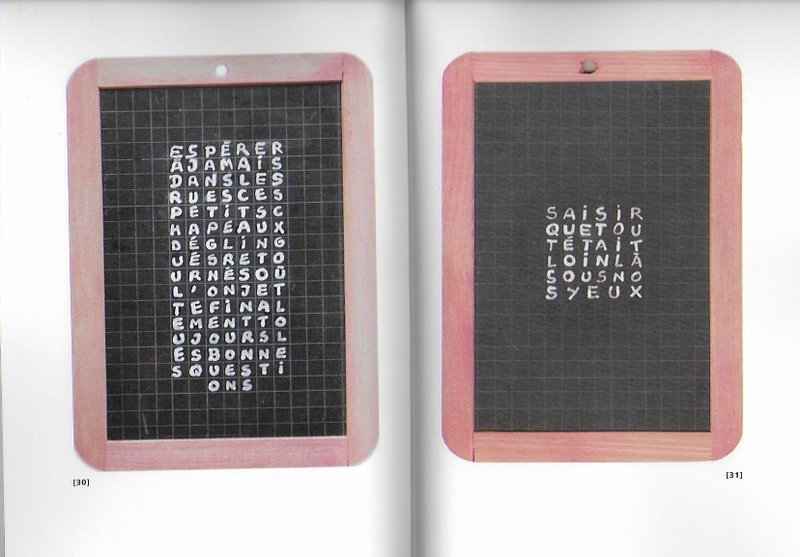 ESPÉRER
ÀJAMAiS
DANSLES
RUESCES
PETiTSC
HAPEAUX
DÉGLiNG
UÉSRETO
URNÉSOÙ
L'ONJET
TEFiNAL
EMENTTO
UJOURSL
ESBONNE
SQUESTi
ONS
[30]
SAiSiR
QUETOU
TÉTAiT
LOiNLÀ
SOUSNO
SYEUX
[31]